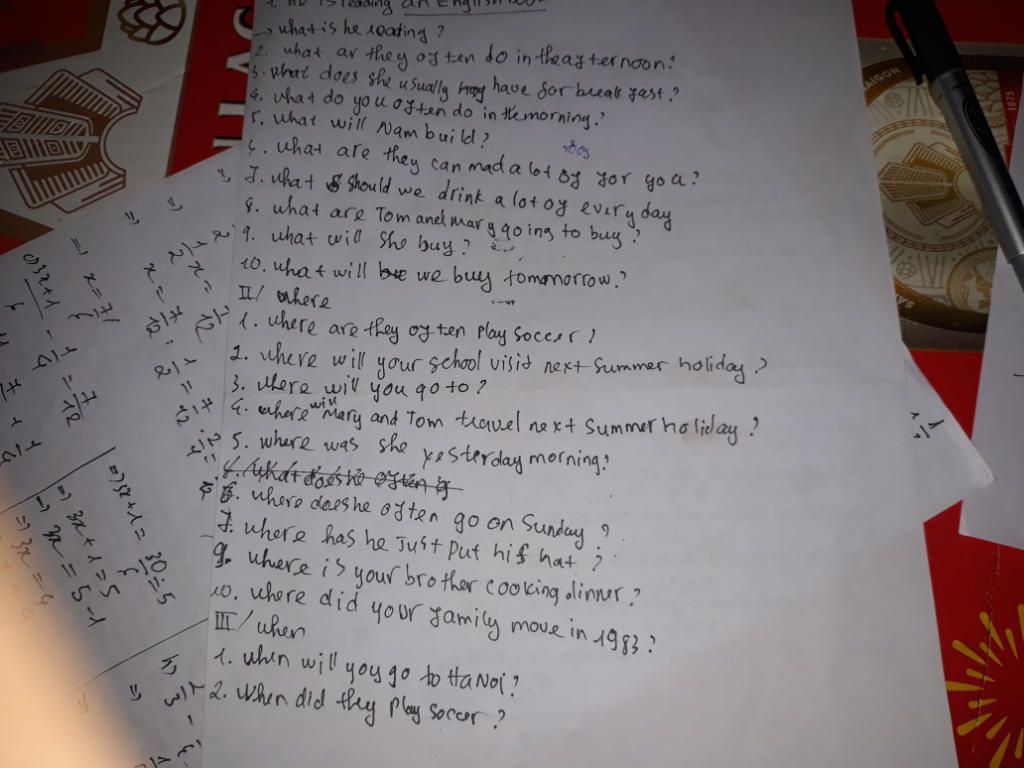 1. He is reading an English book
→ what is he reading?
2. what ar they often do in the afternoon?
3. what does she usually have for breakfast?
4. what do you often do in the morning?
5. what will Nam build?
6. what are they can mad a lot of for you?
7. what should we drink a lot of every day
8. what are Tom and mary going to buy?
9. what will she buy?
10. what will we buy tomonorrow?
II/ where
1. where are they often play soccer?
2. where will your school visit next summer holiday?
3. where will you go to?
4. where will Mary and Tom travel next summer holiday?
5. where was she yesterday morning?
6. what does he often
6. where does he often go on Sunday?
7. where has he Just put his hat?
9. where is your brother cooking dinner?
10. where did your family move in 1983?
III/ when
1. when will you go to Ha Noi?
2. When did they play soccer?
1875
⇒ 3x + 1 = 5
⇒ 3x = 5 - 1
⇒ 3x = 4